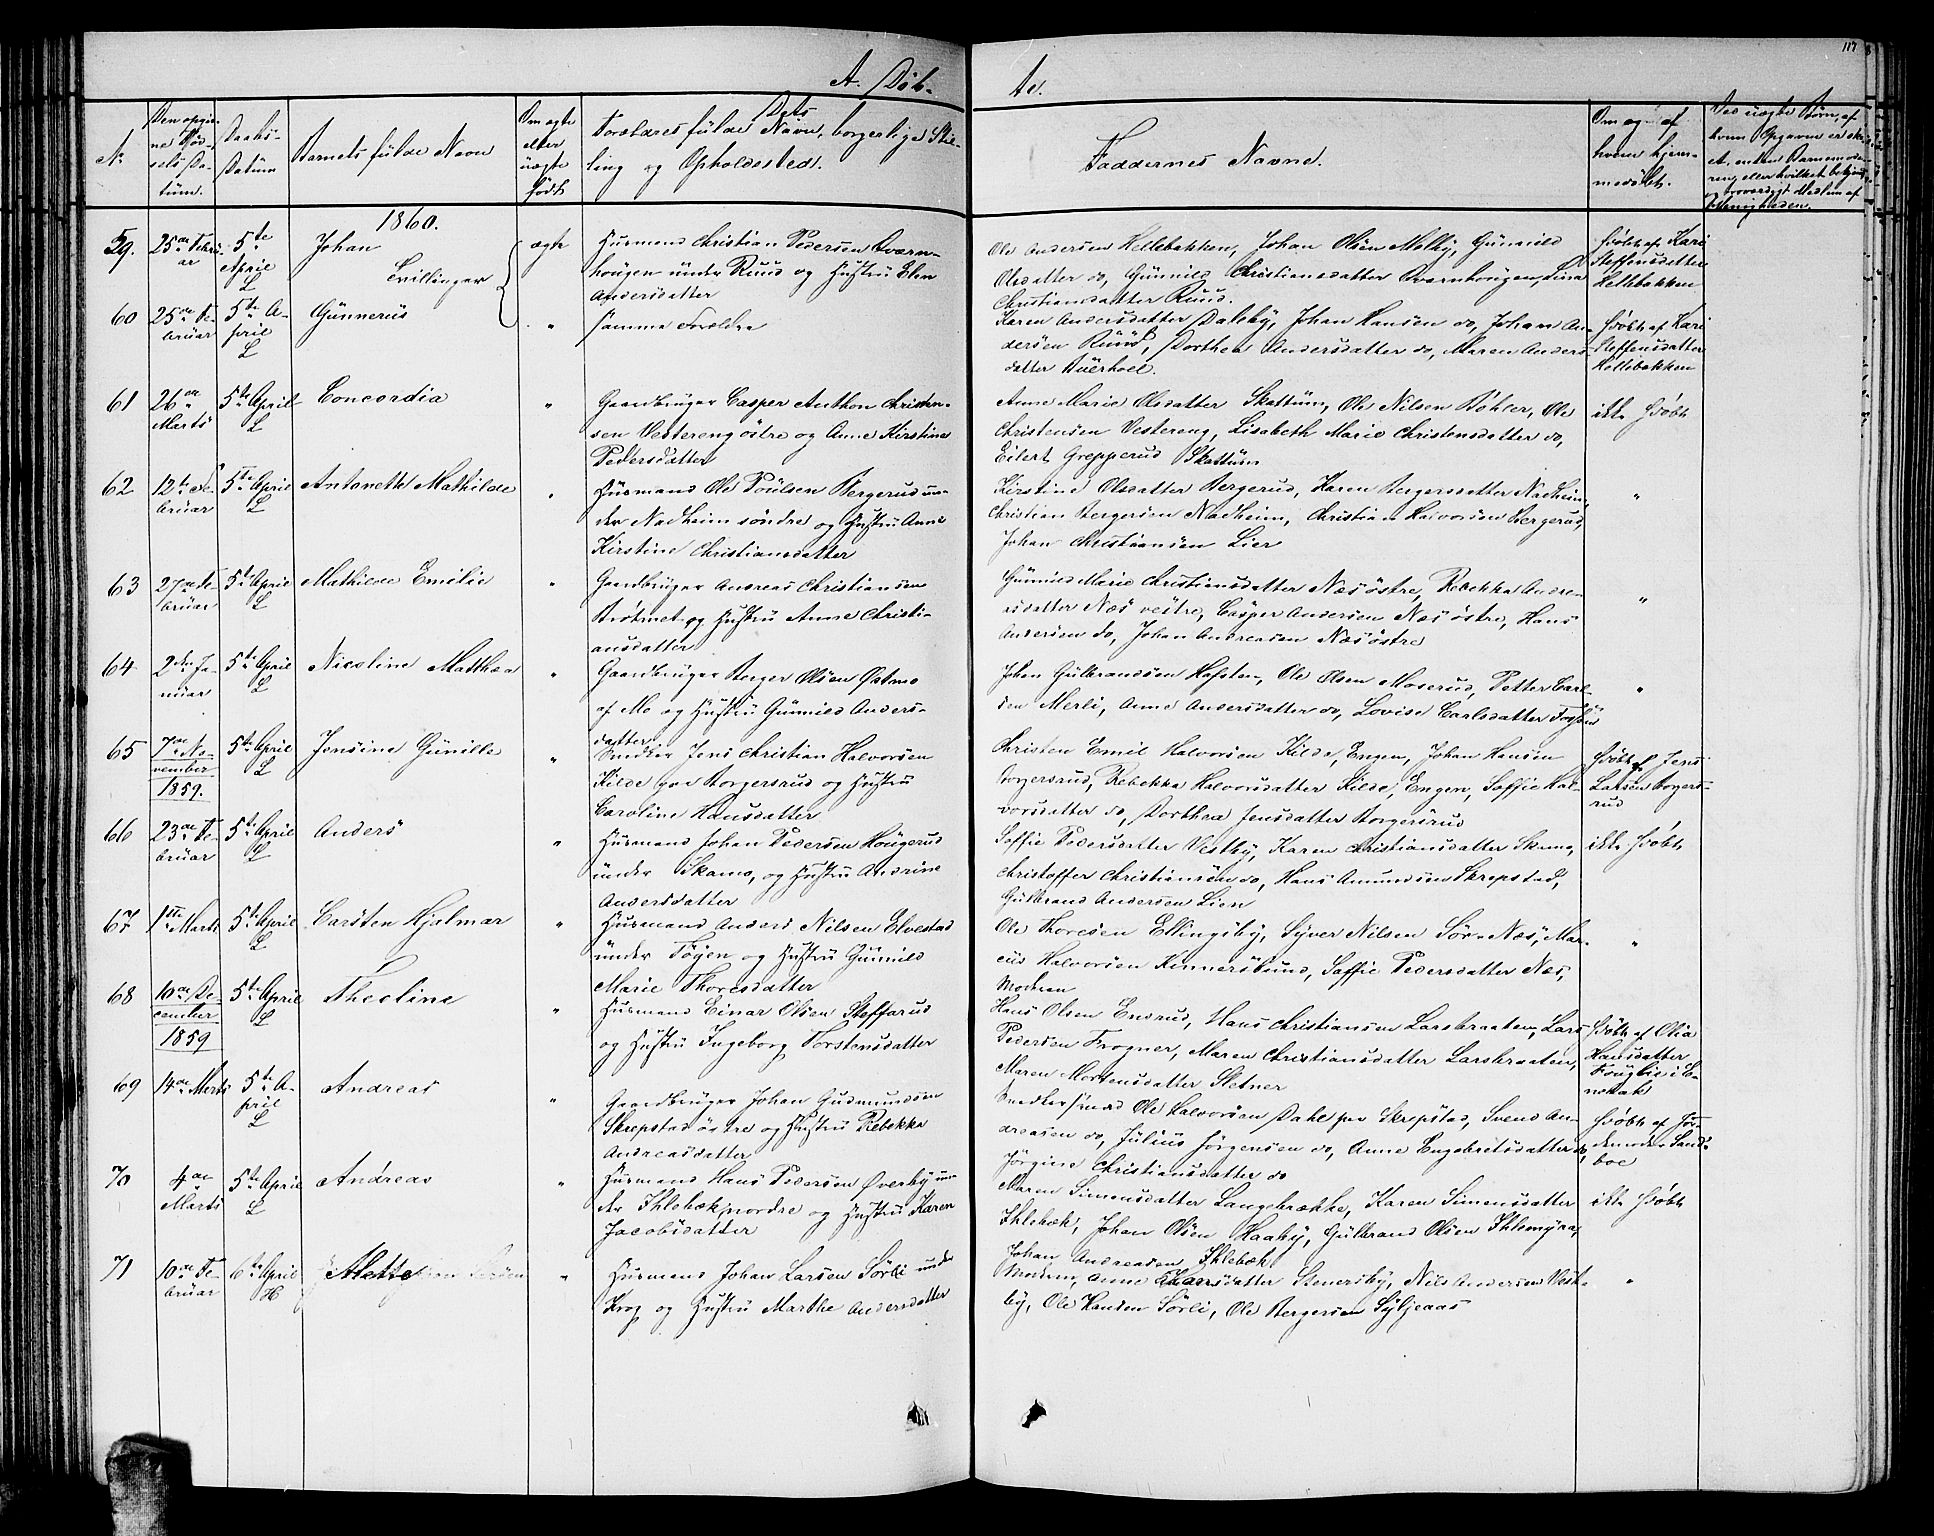 117
A. Døb-
te.
No
Den opgiv-
ne Fød-
sels Da-
tüm.
Daabs-
Datüm
Barnets fülde Navn
Om ægte
eller
üægte
født
Forældres fülde Navn, borgerlige Stil-
ling og Opholdssted.
Faddernes Navne.
Om og af
hvem hjem-
medøbt.
1860.
59. 25de Febrü-
ar
5te
April
L
Johan
Tvillinger
ægte
Husmand Christian Pedersen Qværn-
hougen ünder Ruud og Hustrü Elen
Andersdatter
Ole Andersen Hellebakken, Johan Olsen Melby, Günnild
Olsdatter do, Günnild Christiansdatter Qvarnhougen, Lina
Christiansdatter Ruud.
Hdøbt af Kari
Steffensdatter
Hellebakken
60 25de Fe-
brüar
5te A-
pril
L
Günnerüs
"
samme Forældre
Karen Andersdatter Dalsby, Johan Hansen do, Johan An-
dersen Ruud, Dorthea Andersdatter do, Maren Anders-
datter
Hdøbt af Kari
Steffensdatter
Hellebakken
61 26de
Marts
5te April
L
Concordia
"
Gaardbrüger Casper Anthon Christen-
sen Vestereng östre og Anne Kirstine
Pedersdatter
Anne Marie Olsdatter Skattüm, Ole Nilsen Bøhler, Ole
Christensen Vestereng, Lisabeth Marie Christensdatter do,
Eilert Grepperud Skattüm
ikke Hdøbt
62 12te Fe-
brüar
5te April
L
Antonette Mathilde
"
Hüsmand Ole Poülsen Bergerud un-
der Nadheim söndre og Hustrü Anne
Kirstine Christiansdatter
Kirstine Olsdatter Bergerud, Karen Bergersdatter Nadheim,
Christian Bergersen Nadheim, Christian Halvorsen Bergerud,
Johan Christiansen Lier
"
63 27de Fe-
brüar
5te April
L
Mathilde Emilie
"
Gaardbrüger Andreas Christiansen
Brötmet og Hustrü Anne Christi-
ansdatter
Günnild Marie Christiansdatter Næs östre, Rebekka Andre-
asdatter Næs vestre, Casper Andersen Næs östre, Hans
Andersen do, Johan Andreasen Næs östre
"
64 2den Ja-
nüar
5te April
L
Nicoline Matthea
"
Gaardbrüger Berger Olsen Østmo
af Mo og Hustrü Günnild Anders-
datter
Johan Gülbrandsen Hofsten, Ole Olsen Moserud, Petter Carl-
sen Merli, Anne Andersdatter do, Lovise Carlsdatter
"
65 7de No-
vember
1859.
5te April
L
Jensine Günille
"
Snedker Jens Christian Halvorsen
Kilde paa Borgersrud og Hustrü
Caroline Hansdatter
Christen Emil Halvorsen Kilde, Engen, Johan Hansen
Borgersrud, Rebekka Halvorsdatter Kilde, Engen, Soffie Hal-
vorsdatter do, Dorthea Jensdatter Borgersrud
Hdøbt af Jens
Larsen Borgers-
rud
66 23de Fe-
brüar
5te April
L
Anders
"
Hüsmand Johan Pedersen Hougerud
ünder Skamo, og Hustrü Andrine
Andersdatter
Soffie Pedersdatter Vestby, Karen Christiansdatter Skamo,
Christoffer Christiansen do, Hans Amundsen Skrepstad,
Gülbrand Andersen Lien
ikke Hdøbt
67 1ste Marts
5te April
L
Carsten Hjalmar
"
Hüsmand Anders Nilsen Elvestad
ünder Töyen og Hustrü Günnild
Marie Thoresdatter
Ole Thoresen Ellingsby, Syver Nilsen Sör-Næs, Mar-
cüs Halvorsen Kinnersbund, Soffie Pedersdatter Næs,
Modren
"
68 10de De-
cember
1859
5te April
L
Theoline
"
Hüsmand Einar Olsen Steffarud
og Hustrü Ingeborg Torstensdatter
Hans Olsen Endrud, Hans Christiansen Larsbraaten, Lars
Pedersen Frogner, Maren Christiansdatter Larsbraaten,
Maren Mortensdatter Sletner
Hdøbt af Olia
Hansdatter
Fouglie i E-
nebak
69 14de Marts
5te A-
pril
L
Andreas
"
Gaardbrüger Johan Gudmundsen
Skrepstad östre og Hustrü Rebekka
Andreasdatter
Snedkersvend Ole Halvorsen Dahl paa Skrepstad, Svend An-
dreasen do, Jülius Jörgensen do, Anne Engebretsdatter do,
Jörgine Christiansdatter do
Hdøbt af Jor-
demoder Sand-
boe
70 4de
Marts
5te April
L
Andreas
"
Hüsmand Hans Pedersen Överby un-
der Ihlebæk nordre og Hustrü Karen
Jacobsdatter
Maren Simensdatter Langebrække, Karen Simensdatter
Ihlebæk, Johan Olsen Haaby, Gülbrand Olsen Ihlemyra,
Johan Andreasen Ihlebæk
ikke Hdøbt
71 10de Fe-
brüar
6te April
H
Mette
"
Hüsmand Johan Larsen Sörli under
Krog og Hustrü Marthe Andersdatter
Modren, Anne Larsdatter Stenersby, Nils Andersen Vest-
by, Ole Hansen Sörli, Ole Bergersen Syljeaas
"